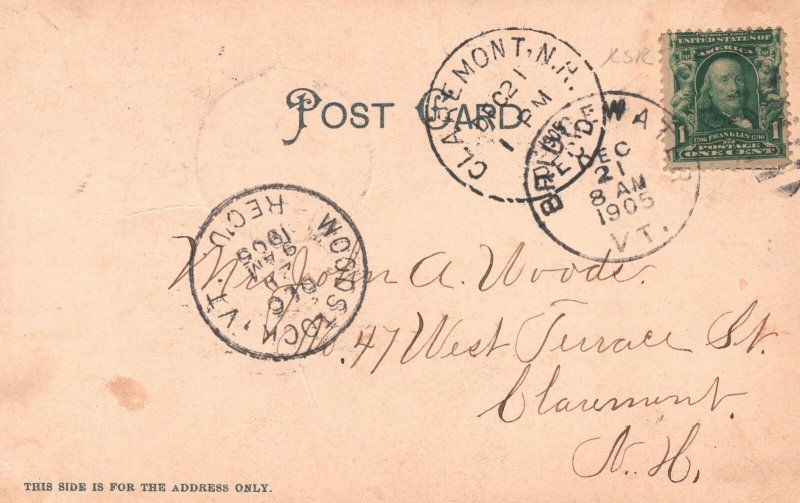 POST CARD
XSR
CLAREMONT, N.H.
DEC 21
1 PM
1905
REC'D
BRIDGEWATER
DEC
21
8 AM
1905
VT.
SERIES 1902
UNITED STATES OF
AMERICA
1 1
1706 FRANKLIN 1790
POSTAGE
ONE CENT
WOODSTOCK, VT.
REC'D
DEC
9 AM
1905
Mrs John A. Woods
No. 47 West Terrace St.
Claremont.
N. H.
THIS SIDE IS FOR THE ADDRESS ONLY.